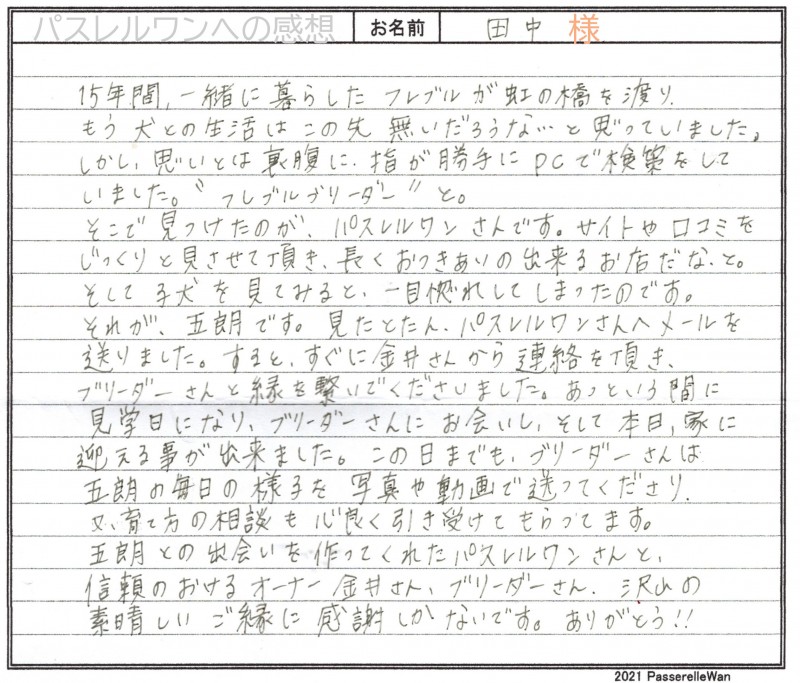 パスレルワンへの感想 お名前 田中 様
15年間、一緒に暮らした フレブルが虹の橋を渡り、
もう犬との生活はこの先 無いだろうな…と思っていました。
しかし、思いとは裏腹に、指が勝手にPCで検策をして
いました。“フレブルブリーダー”と。
そこで見つけたのが、パスレルワンさんです。サイトや口コミを
じっくりと見させて頂き、長くおつきあいの出来るお店だな、と。
そして子犬を見てみると、一目惚れしてしまったのです。
それが、五朗です。見たとたん、パスレルワンさんへメールを
送りました。すると、すぐに金井さんから連絡を頂き、
ブリーダーさんと縁を繋いでくださいました。あっという間に
見学日になり、ブリーダーさんにお会いし、そして本日、家に
迎える事が出来ました。この日までも、ブリーダーさんは
五朗の毎日の様子を写真や動画で送ってくださり、
又、育て方の相談も心良く引き受けてもらってます。
五朗との出会いを作ってくれたパスレルワンさんと、
信頼のおけるオーナー金井さん、ブリーダーさん、沢山の
素晴しいご縁に感謝しかないです。ありがとう!!
2021 PasserelleWan